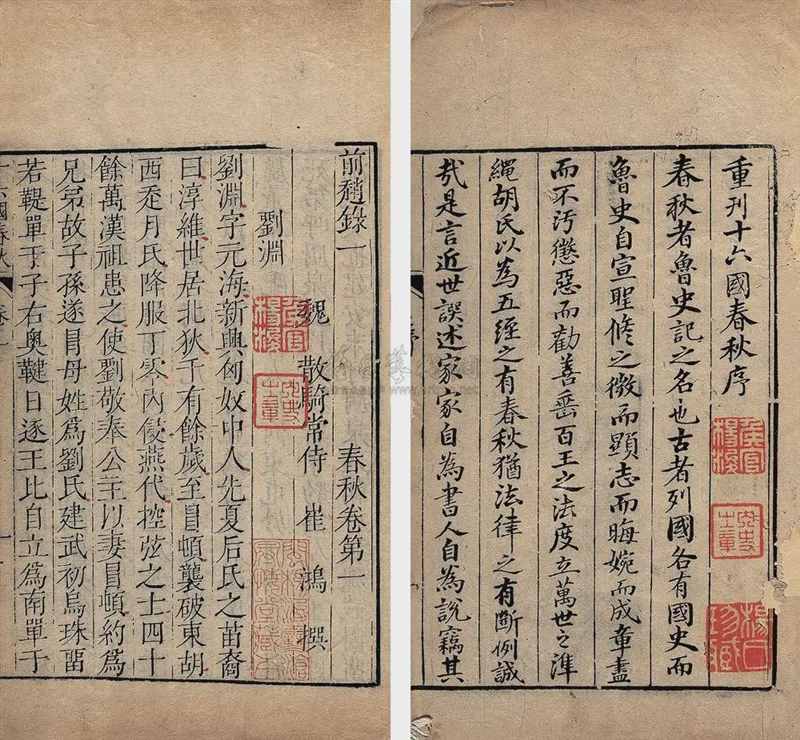 重刊十六國春秋序
春秋者魯史記之名也古者列國各有國史而
魯史自宣聖脩之微而顯志而晦婉而成章盡
而不汚懲惡而勸善垂百王之法度立萬世之準
繩胡氏以為五經之有春秋猶法律之有斷例誠
哉是言近世譔述家家自為書人自為說竊其
序
前趙錄一 春秋卷第一
魏 散騎常侍 崔鴻 撰
劉淵
劉淵字元海新興匈奴中人先夏后氏之苗裔
曰淳維世居北狄千有餘歲至冒頓襲破東胡
西走月氏降服丁零內侵燕代控弦之士四十
餘萬漢祖患之使劉敬奉公主以妻冒頓約為
兄弟故子孫遂冒母姓為劉氏建武初烏珠留
若鞮單于子右奧鞬日逐王比自立為南單于
十六國春秋 卷一